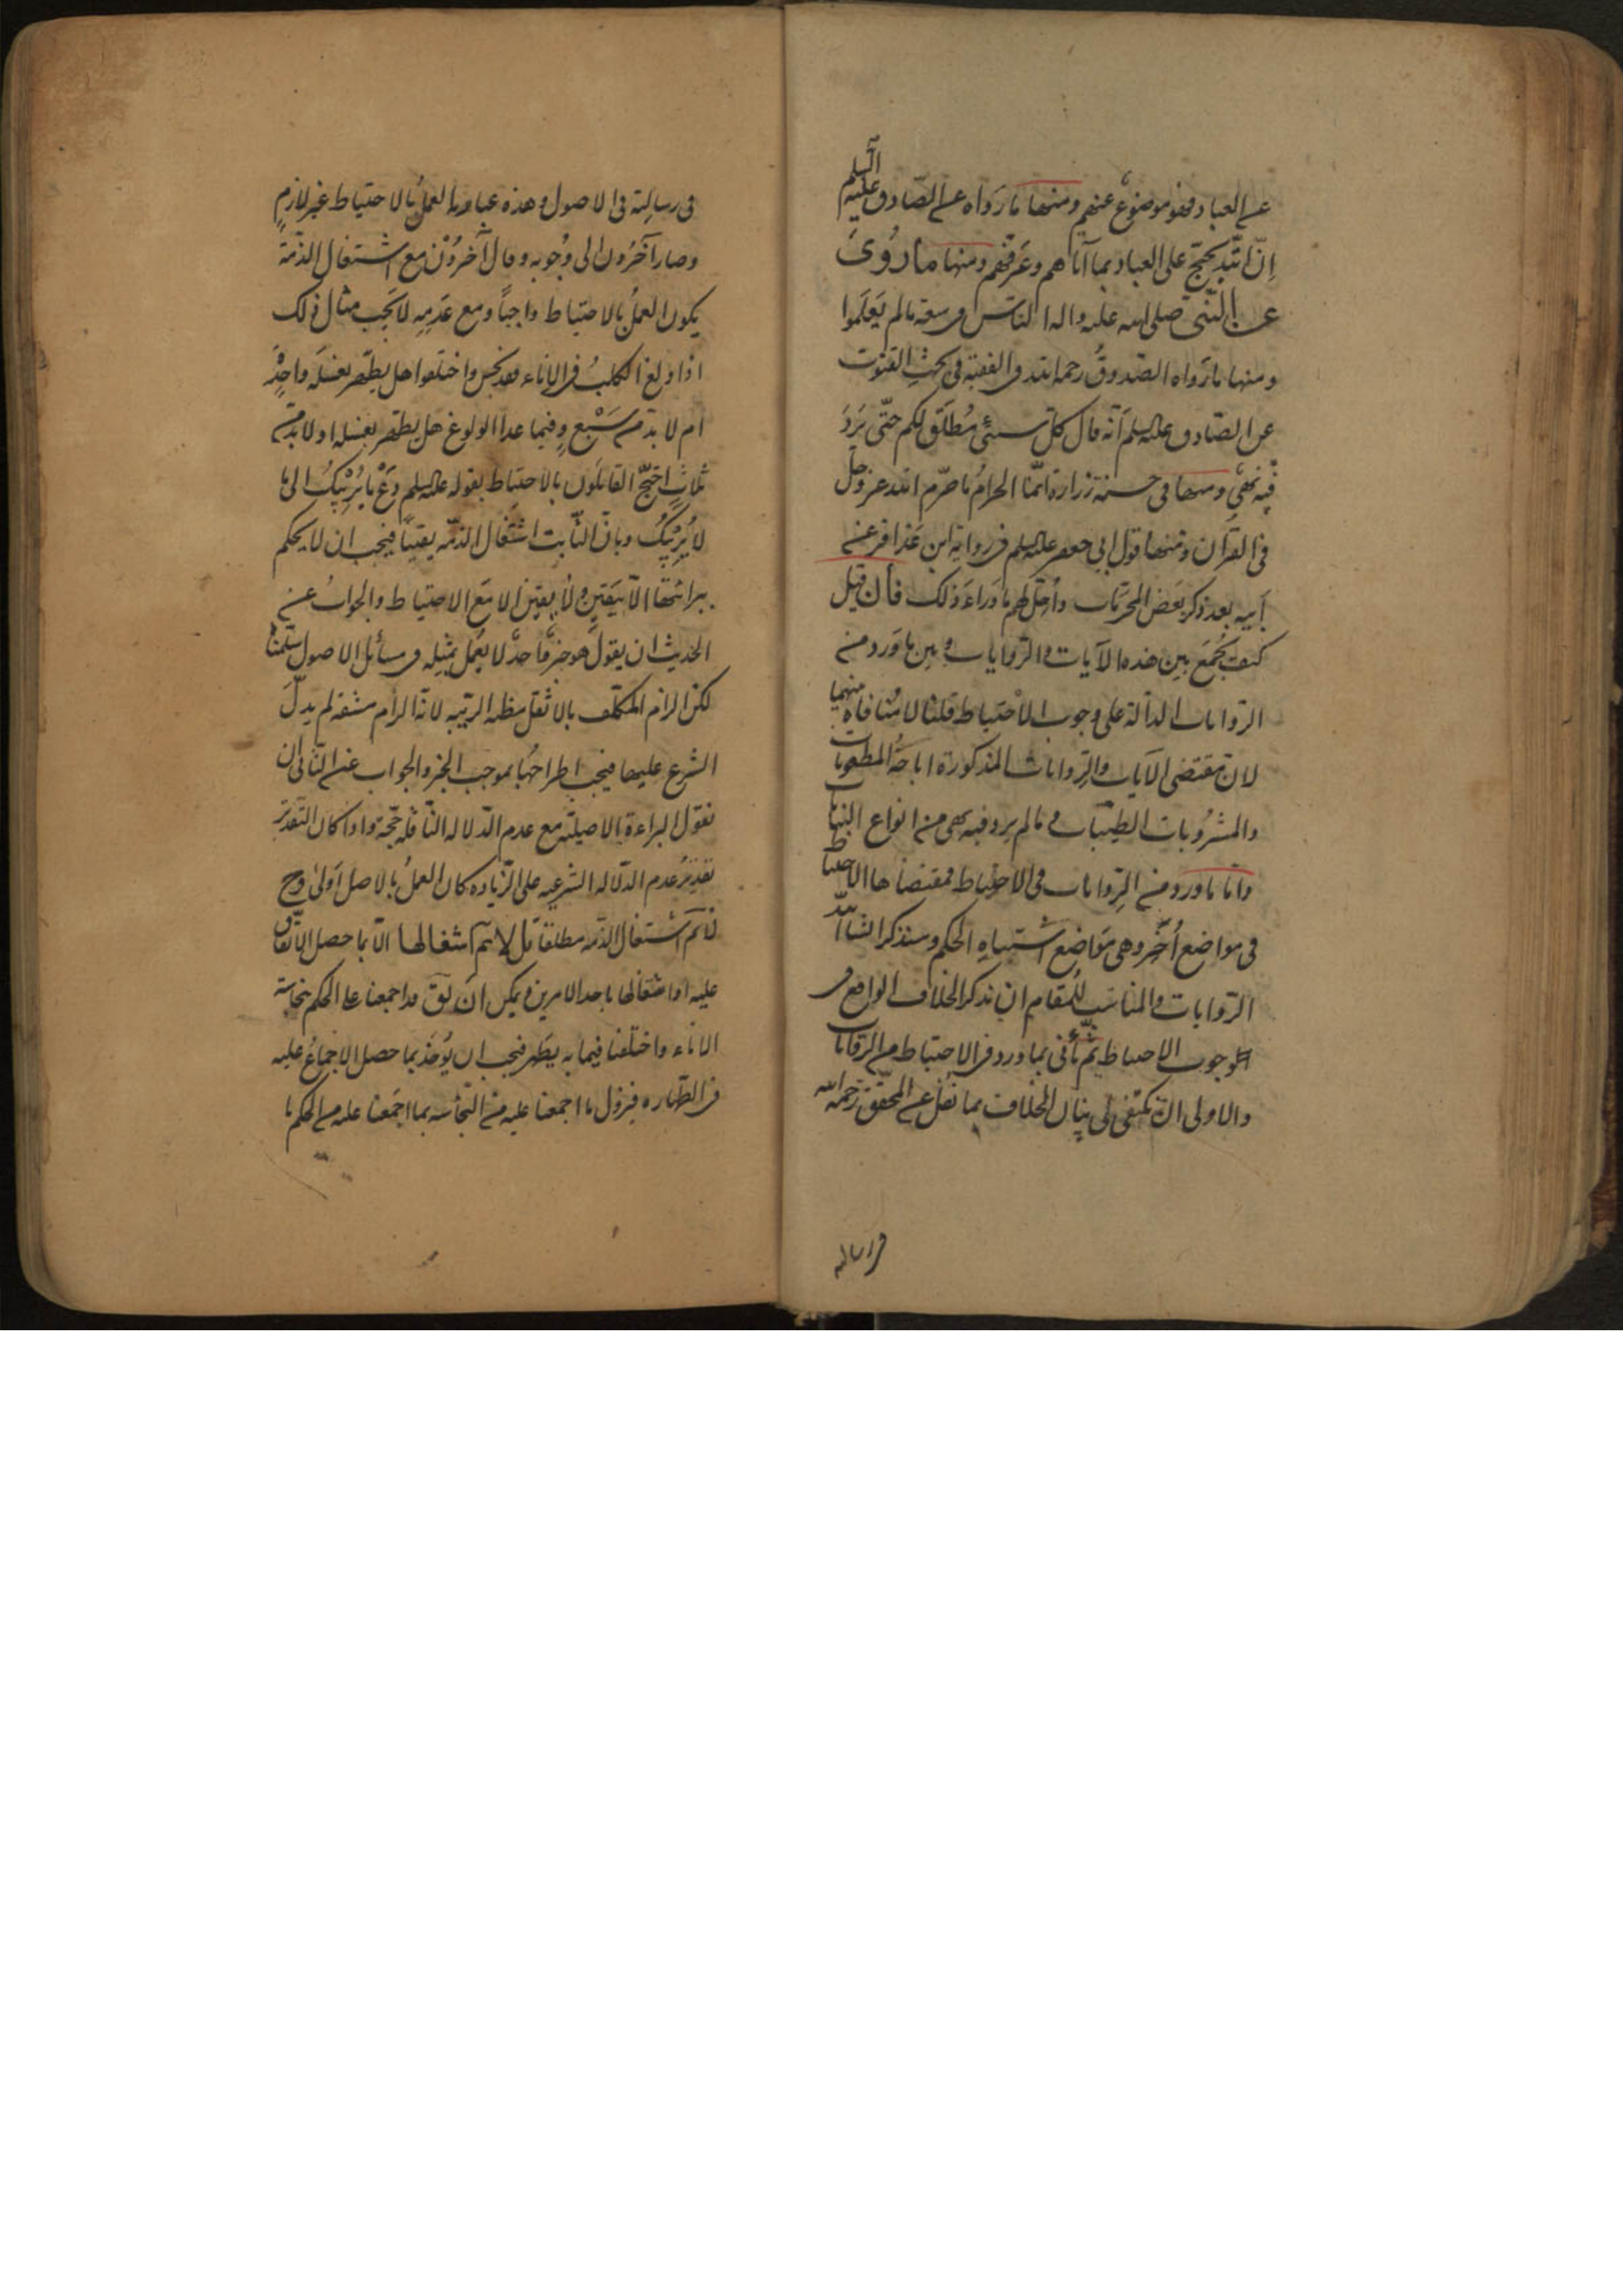 عن العباد فهو موضوع عنهم ومنها ما رواه عن الصّادق عليه السلم
إنّ اللّه يحتجّ على العباد بما آتاهم وعرّفهم ومنها ما روى
عن النّبى صلى الله عليه واله الناس فى سعة مالم يعلموا
ومنها ما رواه الصّدوق رحمه الله فى الفقيه فى بحث القنوت
عن الصّادق عليه السلم أنّه قال كلّ شىء مُطلَق لكم حتّى يَرد
فيه نهى ومنها فى حسنة زرارة انّما الحرامُ ما حرّم الله عزّ وجلّ
فى القرآن ومنها قول ابى جعفر عليه السلم فى رواية ابن عذافر عن
أبيه بعد ذكر بعض المحرّمات وأحلّ لهم ما وراء ذلك فان قيل
كيف يُجمَع بين هذه الآيات والرّوايات وبين ما ورد من
الرّوايات الدالّة على وجوب الاحتياط قلنا لا منافاة منهما
لان مقتضى الآيات والرّوايات المذكورة اباحة المطعومات
والمشروبات الطيّبات و مالم يرد فيه نهى من انواع
وامّا ما ورد من الرّوايات فى الاحتياط فمقتضاها الاحتياط
فى مواضع أُخَر وهى مواضع اشتباه الحكم وسنذكر انشاالله
الرّوايات والمناسب للمقام ان نذكر الخلاف الواقع فى
وجوب الاحتياط ثم نأتى بما ورد فى الاحتياط من الرّوايات
والاولى ان نكتفى فى بيان الخلاف بما نقل عن المحقّق رحمه الله
فى رسالة
فى رسالته فى الاصول وهذه عبارته العملُ بالاحتياط غير لازمٍ
وصار آخرُون الى وُجوبه وقال آخرُوْن مع اشتغال الذّمّة
يكون العملُ بالاحتياط واجباً ومع عَدَمِه لا يَجب مثال ذلك
اذا ولغ الكلبُ فى الاناء فقد نجس واختلفوا هل يطهر بغسلة واحدة
ام لا بدّ من سَبْعٍ وفيما عدا الولوغ هل يطهر بغسلة او لا بدّ من
ثلاثٍ احتجّ القائلون بالاحتياط بقوله عليه السلم دَعْ ما يُرِيْبُك الى ما
لا يُرِيْبُك وبانّ الثّابت اشتغال الذمّه يقيناً فيجب ان لا يحكم
ببرائتها الّا بيَقينٍ ولا يقين الا مَعَ الاحتياط والجوابُ عن
الحديث ان يقول هو خبرٌ واحدٌ لا يُعمل بمثِله فى مسائل الاصول سلّمنا
لكن الزام المكلّف بالاثقل مظنة الريبه لانّه الزام مشقة لم يدلّ
الشرع عليها فيجب اطراحُها بموجب الخبر والجواب عن الثّانى ان
نقول البراءة الاصلية مع عدم الدّلالة النّاقلة حجّة واذا كان التّقدير
تقديرُ عدم الدلالة الشرعيه على الزّياده كان العملُ بالاصل اَولى وح
لا نم اشتغال الذمّه مطلقا بل لا نم اشتغالها الّا بما حصل الاتّفاق
عليه او اشتغالها باحد الامرين ويمكن ان يقَ قد اجمعنا على الحكم بنجاسة
الاناء واختلفنا فيما به يطهر فيجب ان يُؤخذ بما حصل الاجماعُ عليه
فى الطّهاره فيزول ما اجمعنا عليه من النّجاسه بما اجمَعنا عليه من الحكم با